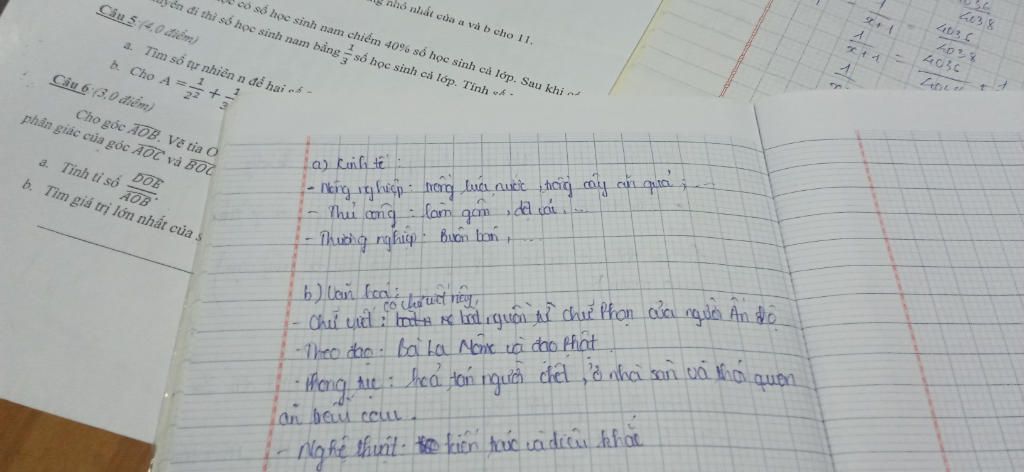 g nhỏ nhất của a và b cho 11.
ọc có số học sinh nam chiếm 40% số học sinh cả lớp. Sau khi
chuyển đi thì số học sinh nam bằng 1/3 số học sinh cả lớp. Tính số
Câu 5:(4,0 điểm)
a. Tìm số tự nhiên n để hai số
b. Cho A = 1/2² + 1/3
Câu 6:(3,0 điểm)
Cho góc AOB. Vẽ tia O
phân giác của góc AOC và BOC
a. Tính tỉ số DOE/AOB.
b. Tìm giá trị lớn nhất của s
1/x+1 = 4036/4038
1/x+1 = 4036/4038
a) Kinh tế:
- Nông nghiệp: trồng lúa nước, trồng cây ăn quả; ...
- Thủ công: làm gốm, dệt vải, ...
- Thương nghiệp: Buôn bán, ...
b) Văn hoá:
có chữ viết riêng,
- Chữ viết: bắt nguồn từ chữ Phạn của người Ấn Độ
- Theo đạo: Bà La Môn và đạo Phật
- Phong tục: hoả táng người chết, ở nhà sàn và thói quen
ăn trầu cau.
- Nghệ thuật: kiến trúc và điêu khắc